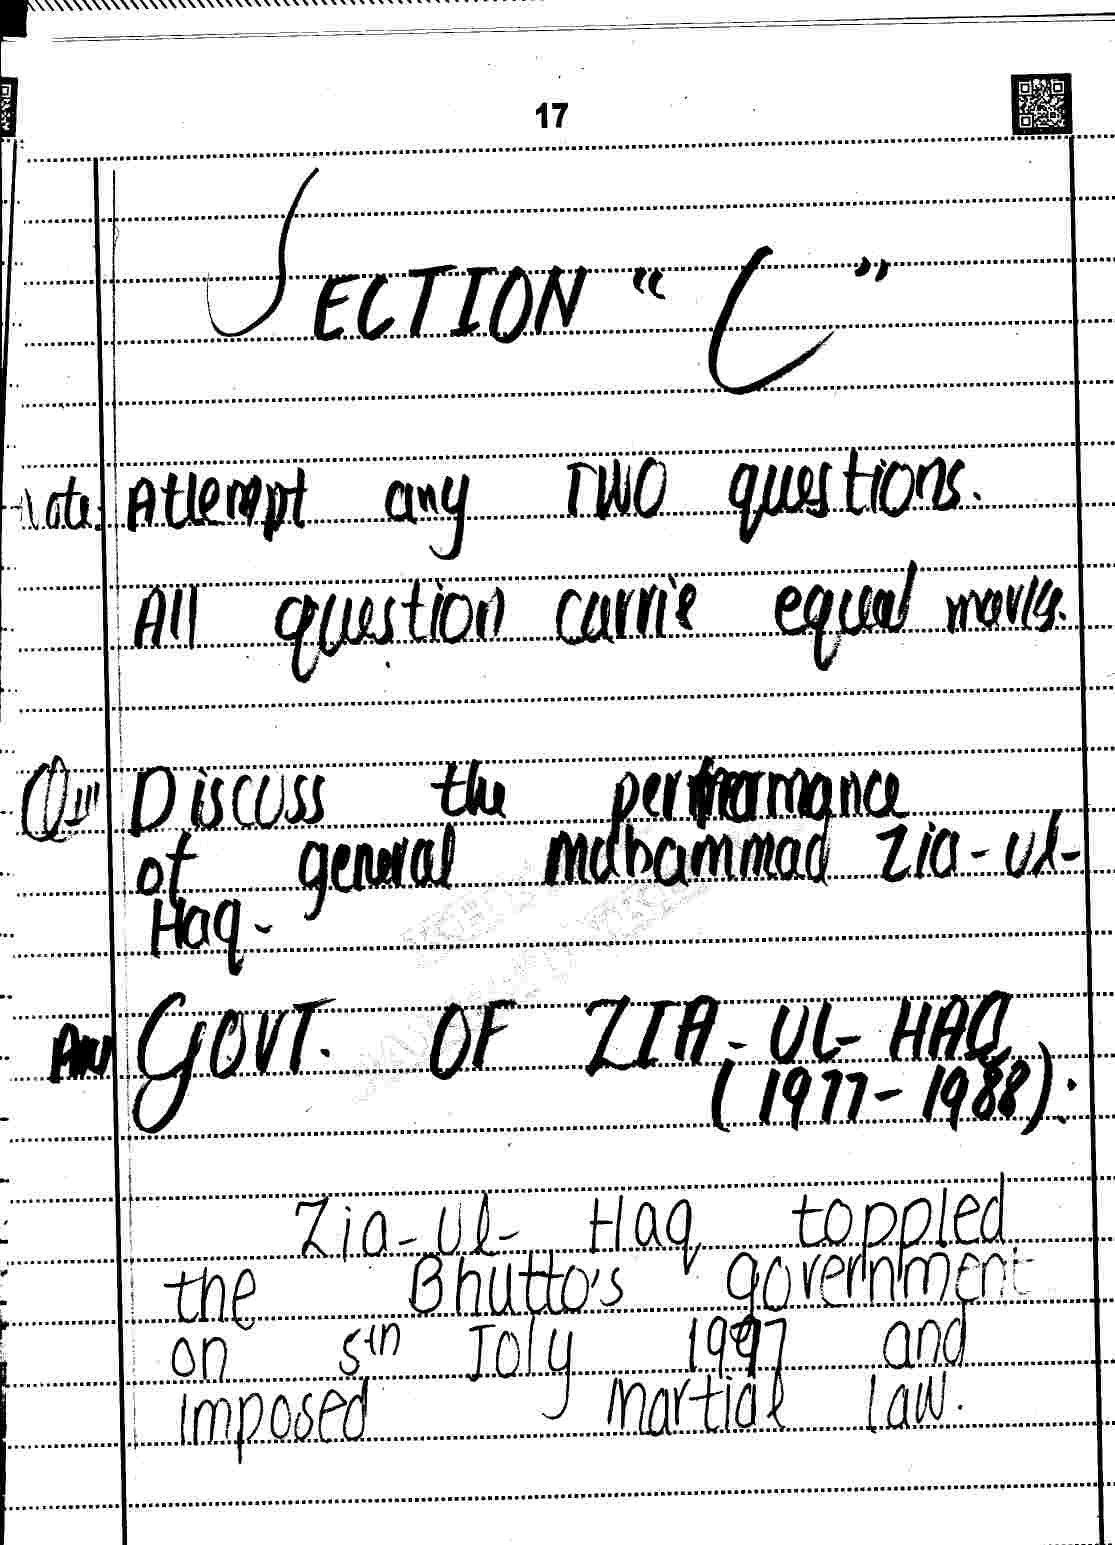 17
SECTION "C"
Note: Attempt any TWO questions.
All question carrie equal marks.
Q III Discuss the performance
of general mohammad Zia-ul-
Haq-
Ans GOVT. OF ZIA-UL-HAQ
(1977-1988):
Zia-ul-Haq toppled
the Bhutto's government
on 5th Joly 1997 and
imposed martial law.